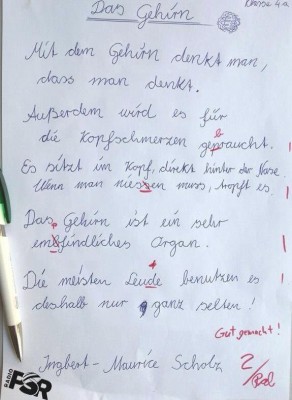 Klasse 4a
Das Gehirn
Mit dem Gehirn denkt man,
dass man denkt.
Außerdem wird es für
b
die Kopfschmerzen gepraucht. |
Es sitzt im Kopf, direkt hinter der Nase.
Wenn man niesen muss, tropft es. |
Das Gehirn ist ein sehr
p
embfindliches Organ. |
Die meisten Leude benutzen es |
t
deshalb nur ganz selten!
Gut gemacht!
Ingbert-Maurice Scholz
2/
RADIO
FSR